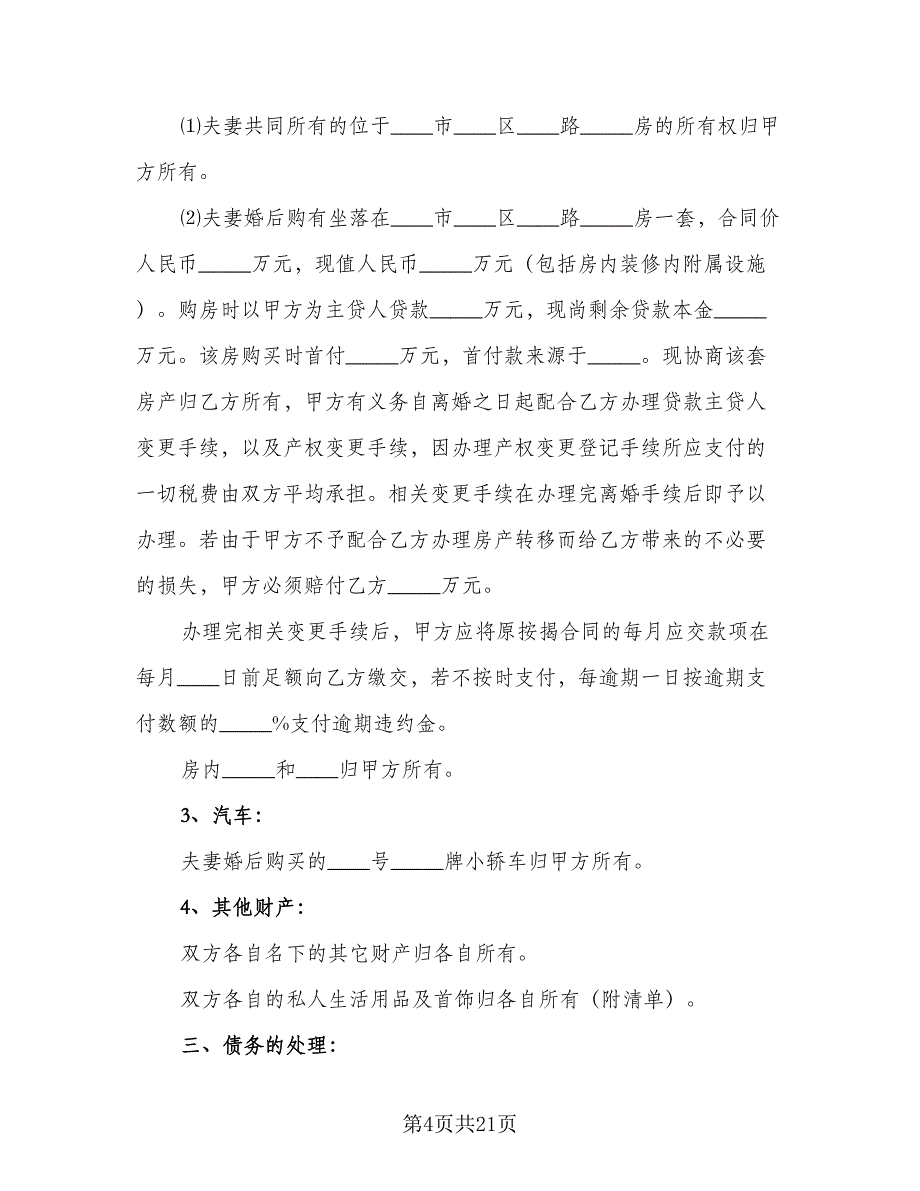 ⑴夫妻共同所有的位于____市____区____路_____房的所有权归甲
方所有。
⑵夫妻婚后购有坐落在____市____区____路_____房一套，合同价
人民币_____万元，现值人民币_____万元（包括房内装修内附属设施
）。购房时以甲方为主贷人贷款_____万元，现尚剩余贷款本金_____
万元。该房购买时首付_____万元，首付款来源于_____。现协商该套
房产归乙方所有，甲方有义务自离婚之日起配合乙方办理贷款主贷人
变更手续，以及产权变更手续，因办理产权变更登记手续所应支付的
一切税费由双方平均承担。相关变更手续在办理完离婚手续后即予以
办理。若由于甲方不予配合乙方办理房产转移而给乙方带来的不必要
的损失，甲方必须赔付乙方_____万元。
办理完相关变更手续后，甲方应将原按揭合同的每月应交款项在
每月____日前足额向乙方缴交，若不按时支付，每逾期一日按逾期支
付数额的_____%支付逾期违约金。
房内_____和____归甲方所有。
3、汽车：
夫妻婚后购买的____号_____牌小轿车归甲方所有。
4、其他财产：
双方各自名下的其它财产归各自所有。
双方各自的私人生活用品及首饰归各自所有（附清单）。
三、债务的处理：
第4页共21页